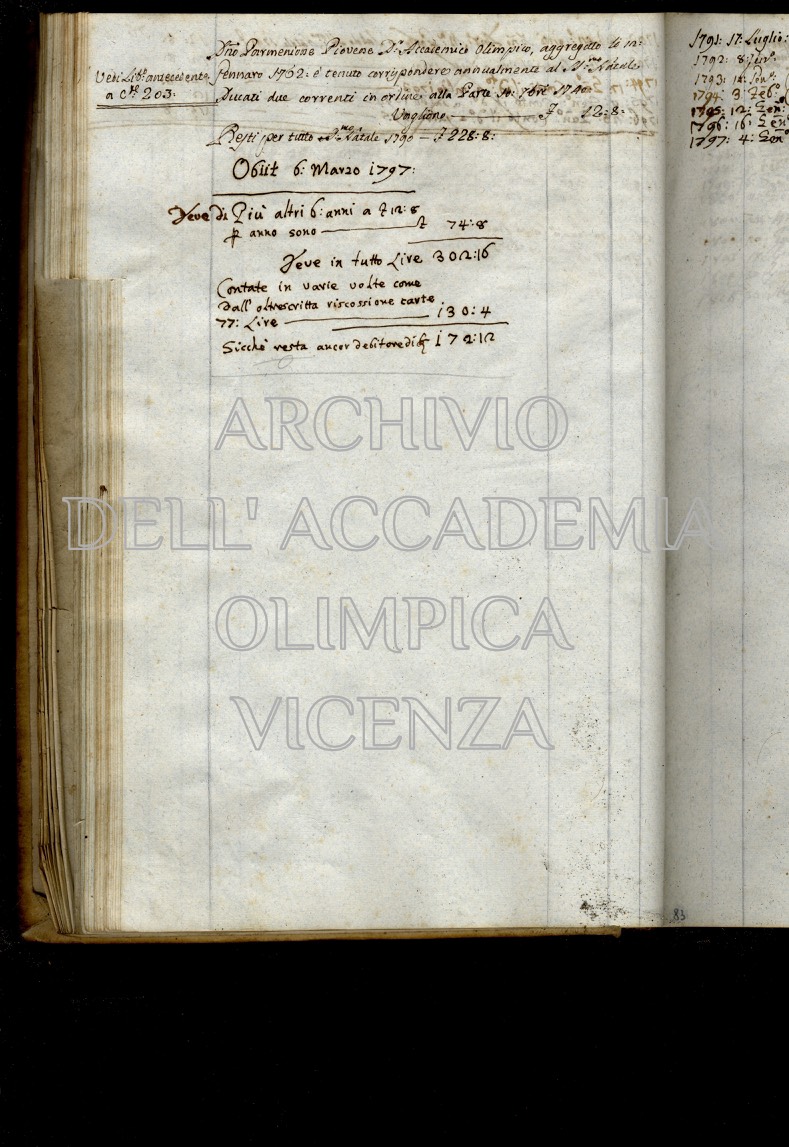 Dño Parmenione Piovene Dº Accademico Olimpico, aggregato li 10:
Gennaro 1762: è tenuto corrispondere annualmente al Smo Natale
Ducati due correnti in ordine alla Parte 10: 7bre 1740:
Vagliono 12:8:
Vedi Libº antecedente
a Cte 203:
Resti per tutto Smo Natale 1790 228:8:
Obijt 6: Marzo 1797:
Deve di Più altri 6: anni a 12:8
anno sono 74:8
Deve in tutto Lire 302:16
Contate in varie volte come
Dall' oltrescritta riscossione carte
77: Lire 130:4
Sicchè resta ancor debitore di 172:12
1791: 17: Luglio:
1792: 8:
1793: 14: Genº:
1794: 3 Febº:
1795: 12: Gen:
1796: 16: Genº
1797: 4: Genº
83
ARCHIVIO
DELL' ACCADEMIA
OLIMPICA
VICENZA